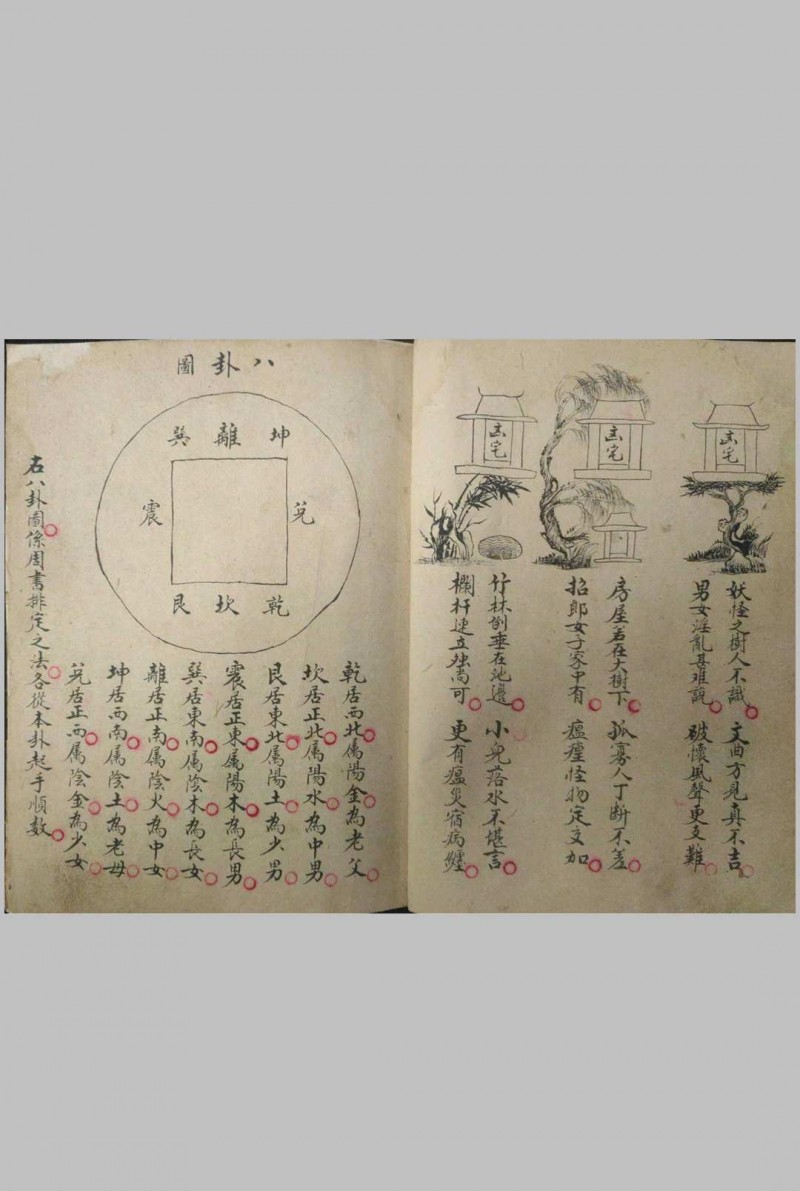 凶宅
妖怪之樹人不識 文曲方見真不吉
男女淫亂甚难説 破懷風聲更支難
凶宅
房屋若在大樹下 孤寡人丁斷不差
招郎女子家中有 瘟瘴怪物定交加
凶宅
竹林倒垂在池邊 小兒落水不堪言
欄杆建立猶尚可 更有瘟災宿病纏
八卦圖
坤 離 巽
兌 震
乾 坎 艮
乾居西北属陽金為老父
坎居正北属陽水為中男
艮居東北属陽土為少男
震居正東属陽木為長男
巽居東南属陰木為長女
離居正南属陰火為中女
坤居西南属陰土為老母
兌居正西属陰金為少女
右八卦圖係周書排定之法各從本卦起手順数